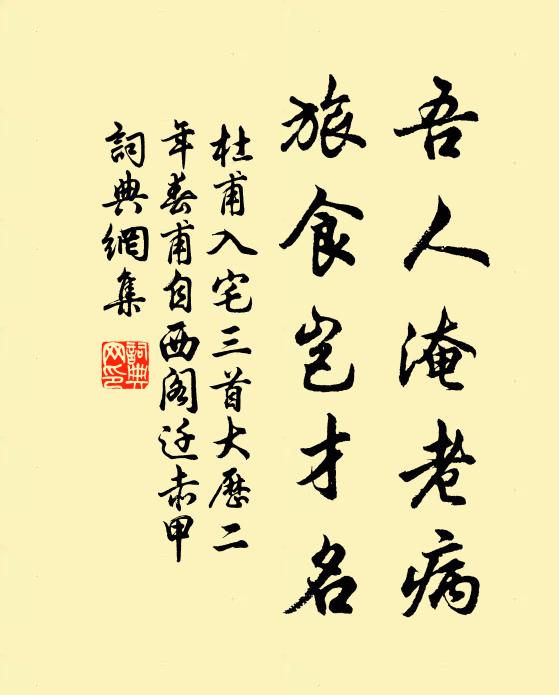 吾人淹老病
旅食岂才名
杜甫入宅三首大歷二
年春甫自西阁迁赤甲
詞典網集
詞典
网印